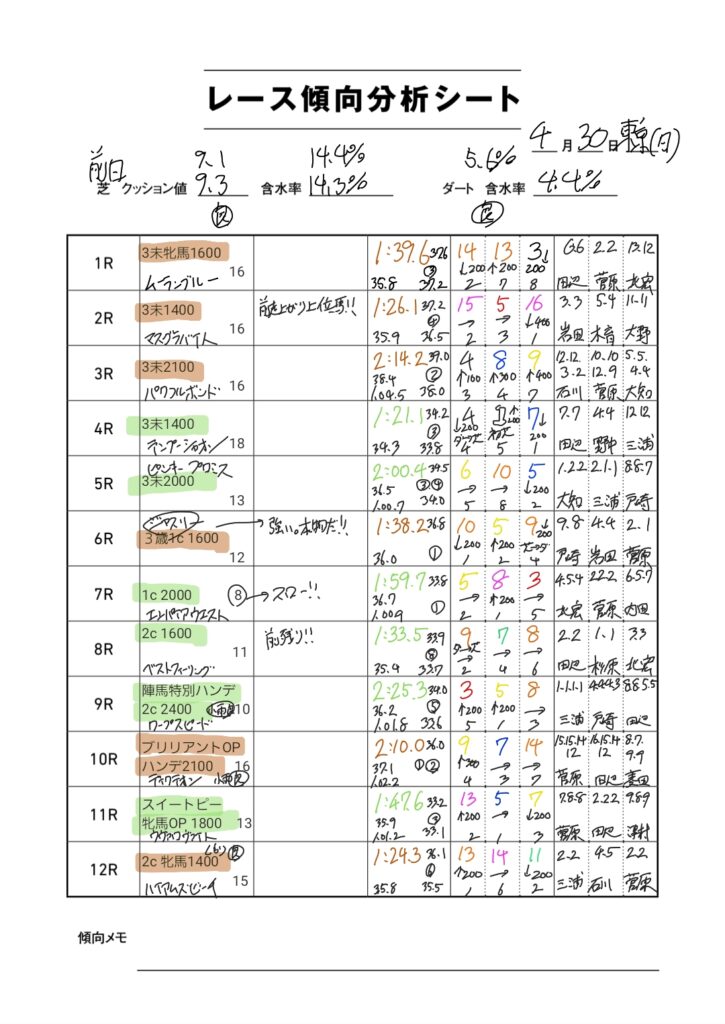 レース傾向分析シート
4月30日 東京(日)
前日 9.1 14.4% 5.6%
芝 クッション値 9.3 含水率 14.3% ダート 含水率 4.4%
良 良
1R 3未牝馬1600 1:39.6 37.6 14 13 3 6.6 2.2 13.12
16 ③ ↓200 ↑200 ↓200
ムーランブルー 35.8 37.2 2 7 8 田辺 菅原 北宏
2R 3未1400 前、上がり上位馬!! 1:26.1 37.2 15 5 16 3.3 5.4 11.11
16 → → ↓400
マスグラバイト 35.9 36.5 2 3 1 岩田 木音 大野
3R 3未2100 2:14.2 39.0 4 8 9 12.12. 10.10 5.5.
16 38.4 ② ↑100 ↑300 ↑400 3.2 12.9 4.4
パワフルボンド 1.04.5 38.0 3 4 7 石川 菅原 大知
4R 3未1400 1:21.1 34.2 4 7 7.7 4.4 12.12
18 ③ ↓200 ↓200
34.3 33.8 4 5 1 田辺 野中 三浦
5R ピンキープロミス 2:00.4 34.5 6 10 5 1.2.2 2.1.1 8.8.7
3未2000 36.5 → → ↓200
13 1.00.7 34.0 5 8 2 大知 三浦 戸崎
6R ジャスリー → 強い。本物だ!! 1:38.2 36.8 10 5 9 9.8 4.4 2.1
3歳1c 1600 ↓200 ↑200 ↓200
12 36.0 ① 1 2 4 戸崎 岩田 菅原
7R 1c 2000 ⑧ → スロー!! 1:59.7 33.8 5 8 3 4.5.4 2.2.2 6.5.7
36.7 → ↑200 →
エンパイアウエスト 1.00.9 ① 2 1 5 北宏 菅原 内田
8R 2c 1600 前残り!! 1:33.5 33.9 9 7 8 2.2 1.1 3.3
11 → →
ベストフィーリング 35.4 33.7 2 4 6 田辺 杉原 北宏
9R 陣馬特別ハンデ 2:25.3 34.0 3 5 8 1.1.1.1 4.4.4.3 8.8.5.5
2c 2400 小雨良 10 36.2 ⑤ ↑200 ↑200 →
ワープスピード 1.01.8 33.6 5 1 3 三浦 戸崎 田辺
10R ブリリアントOP 2:10.0 36.0 9 7 14 15.15.14 16.15.14 8.7.
ハンデ2100 16 37.1 ①② ↑300 → → 12 12 9.9
ディクテオン 小雨良 1.02.2 4 3 7 菅原 田辺
11R スイートピー 1:47.6 33.2 13 5 7 7.8.8 2.2.2 9.8.9
牝馬OP 1800 13 35.9 ↑200 → ↓200
1.01.2 33.1 2 1 3 菅原 田辺 津村
12R 2c 牝馬1400 1:24.3 36.1 13 14 11 2.2 4.5 2.2
15 ⑥ ↑200 → ↓200
ハイアムズビーチ 35.8 35.5 1 6 2 三浦 石川 菅原
傾向メモ